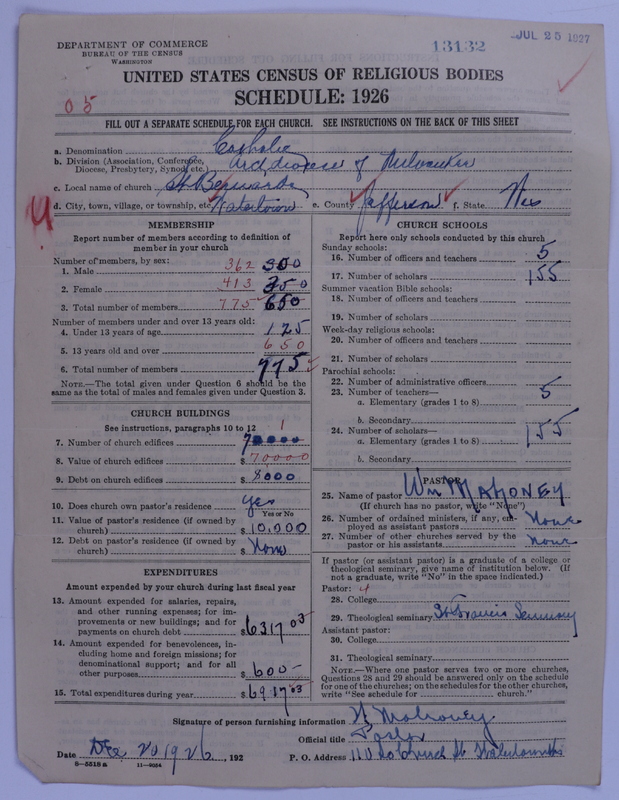 DEPARTMENT OF COMMERCE
BUREAU OF THE CENSUS
WASHINGTON
13132
JUL 25 1927
UNITED STATES CENSUS OF RELIGIOUS BODIES
SCHEDULE: 1926
05
FILL OUT A SEPARATE SCHEDULE FOR EACH CHURCH. SEE INSTRUCTIONS ON THE BACK OF THIS SHEET
a. Denomination Catholic
b. Division (Association, Conference, Diocese, Presbytery, Synod, etc.) Archdiocese of Milwaukee
c. Local name of church St. Bernards
d. City, town, village, or township, etc. Watertown e. County Jefferson f. State Wis
MEMBERSHIP
Report number of members according to definition of
member in your church
Number of members, by sex:
1. Male 362 300
2. Female 413 350
3. Total number of members 775 650
Number of members under and over 13 years old:
4. Under 13 years of age 125
5. 13 years old and over 650
6. Total number of members 775
NOTE.—The total given under Question 6 should be the
same as the total of males and females given under Question 3.
CHURCH BUILDINGS
See instructions, paragraphs 10 to 12
7. Number of church edifices 1
8. Value of church edifices $70000
9. Debt on church edifices $8000
10. Does church own pastor's residence yes
Yes or No
11. Value of pastor's residence (if owned by
church) $10,000
12. Debt on pastor's residence (if owned by
church) $None
EXPENDITURES
Amount expended by your church during last fiscal year
13. Amount expended for salaries, repairs,
and other running expenses; for im-
provements or new buildings; and for
payments on church debt $6317 03
14. Amount expended for benevolences, in-
cluding home and foreign missions; for
denominational support; and for all
other purposes $600-
15. Total expenditures during year $6917 03
CHURCH SCHOOLS
Report here only schools conducted by this church
Sunday schools:
16. Number of officers and teachers 5
17. Number of scholars 155
Summer vacation Bible schools:
18. Number of officers and teachers
19. Number of scholars
Week-day religious schools:
20. Number of officers and teachers
21. Number of scholars
Parochial schools:
22. Number of administrative officers
23. Number of teachers—
a. Elementary (grades 1 to 8) 5
b. Secondary
24. Number of scholars—
a. Elementary (grades 1 to 8) 155
b. Secondary
PASTOR
25. Name of pastor Wm MAHONEY
(If church has no pastor, write "None")
26. Number of ordained ministers, if any, em-
ployed as assistant pastors None
27. Number of other churches served by the
pastor or his assistants None
If pastor (or assistant pastor) is a graduate of a college or
theological seminary, give name of institution below. (If
not a graduate, write "No" in the space indicated.)
Pastor: 4
28. College
29. Theological seminary St Francis Seminary
Assistant pastor:
30. College
31. Theological seminary
NOTE.—Where one pastor serves two or more churches,
Questions 28 and 29 should be answered only on the schedule
for one of the churches; on the schedules for the other churches,
write "See schedule for church."
Signature of person furnishing information W Mahoney
Official title Pastor
Date Dec 20 1926, 192 P. O. Address 110 So Church St Watertown Wis
8—5518 a 11—9054